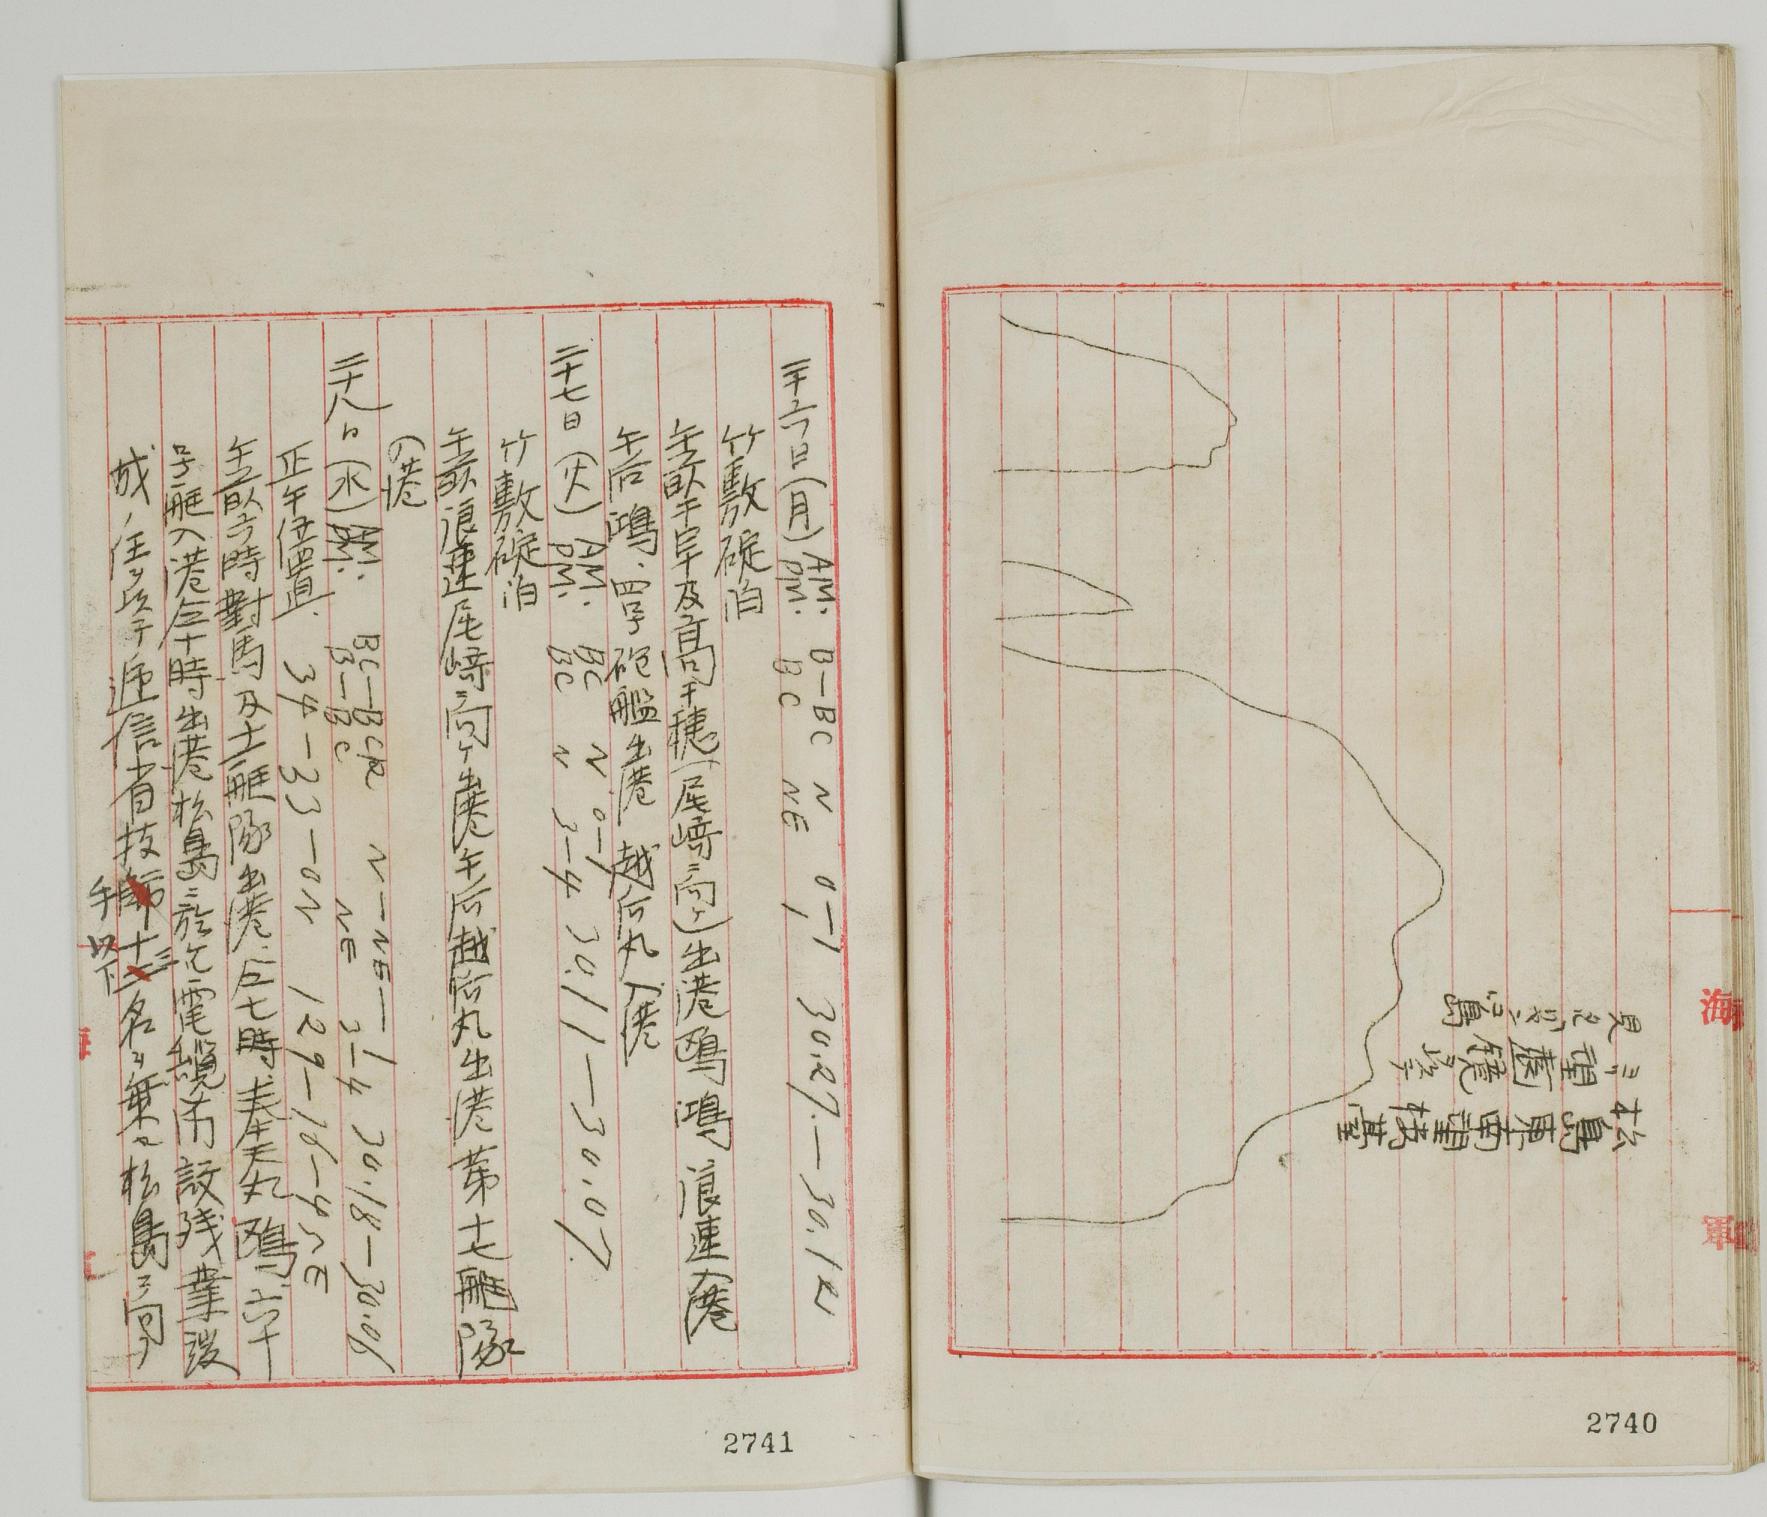 松島東南望樓臺
ヨリ望遠鏡ヲ以テ
見タルリヤンコ島
海軍
2740
二十六日(月) AM. B—BC N 0—1 30.27.—30.12
PM. BC NE
竹敷碇泊
午前千早及高千穂(尾崎ニ向ケ)出港 鴎 鴻 浪速入港
午后鴻、四号砲艦出港 越后丸入港
二十七日(火) AM. BC N 0—1 30.11—30.07.
PM. BC N 3—4
竹敷碇泊
午前浪速尾崎ニ向ケ出港 午后越后丸出港 第十七艇隊
入港
二十八日(水) AM. BC—BCR N—NE—1 30.18—30.06
PM. B—BC NE 3—4
正午位置. 34—33—0N 129—16—45E
午前六時對馬及十一艇隊出港、仝七時.奉天丸 鴎 六十
号艇入港仝十時出港松島ニ於ケル電纜布設残業ヲ
成ノ任ヲ以テ逓信省技手以下十三名ヲ乗セ松島ニ向フ
2741